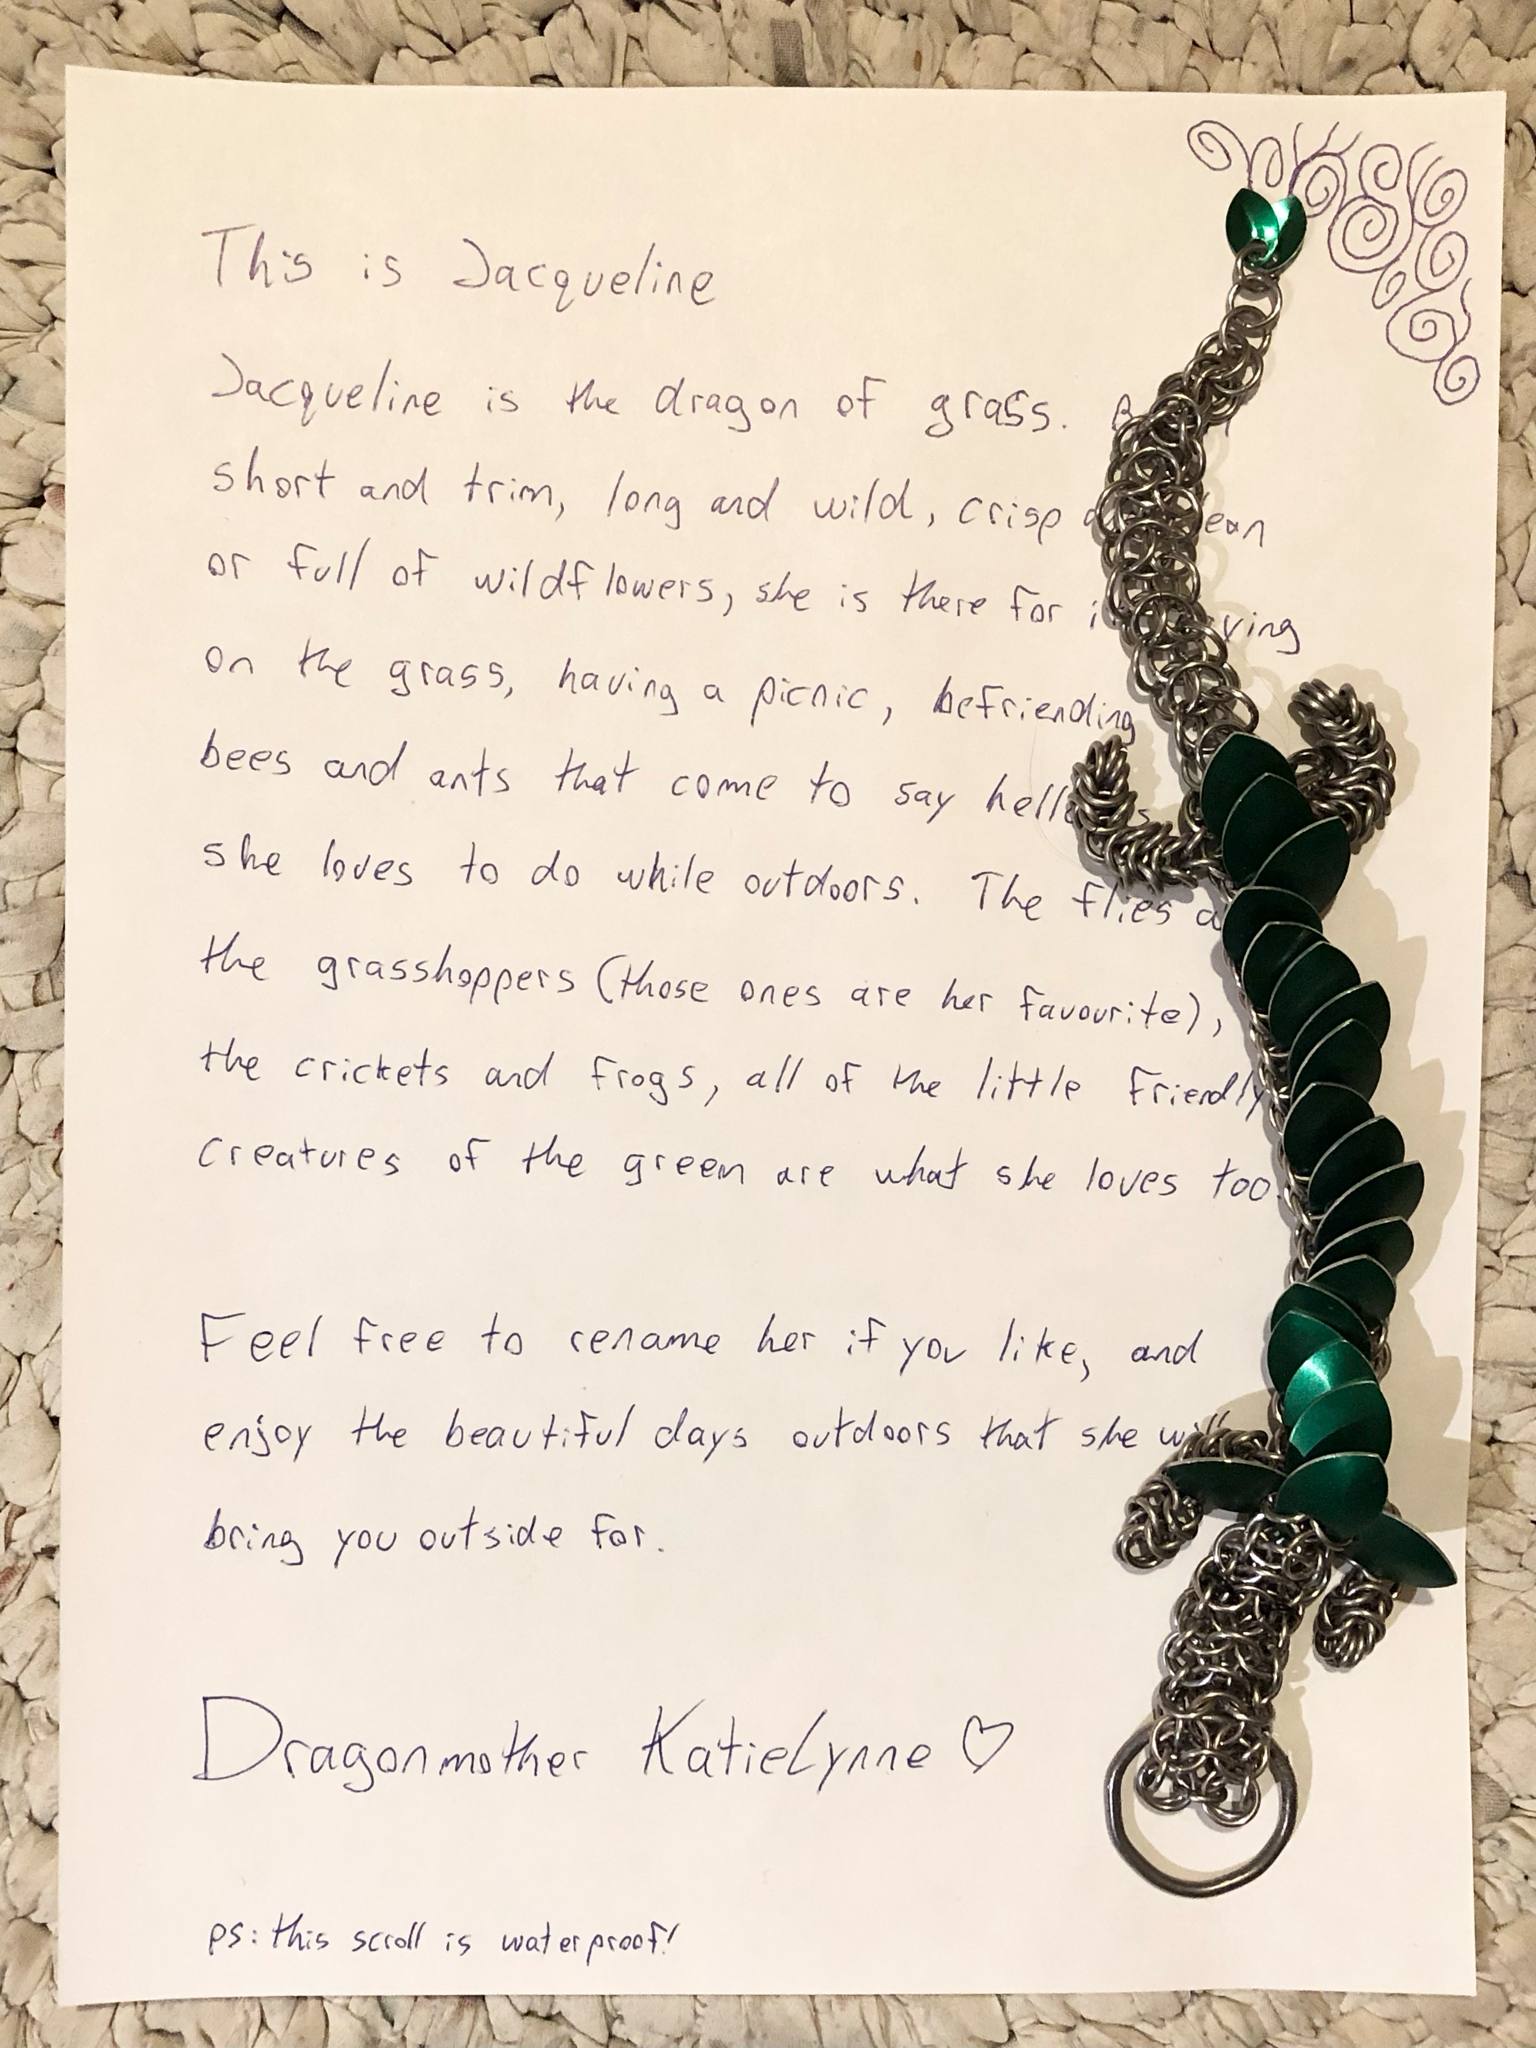 This is Jacqueline
Jacqueline is the dragon of grass.
short and trim, long and wild, crisp
or full of wildflowers, she is there for
on the grass, having a picnic, befriending
bees and ants that come to say
she loves to do while outdoors. The flies
the grasshoppers (those ones are her favourite),
the crickets and frogs, all of the little friendly
creatures of the green are what she loves too.
Feel free to rename her if you like, and
enjoy the beautiful days outdoors that she will
bring you outside for.
Dragonmother KatieLynne
ps: this scroll is waterproof!